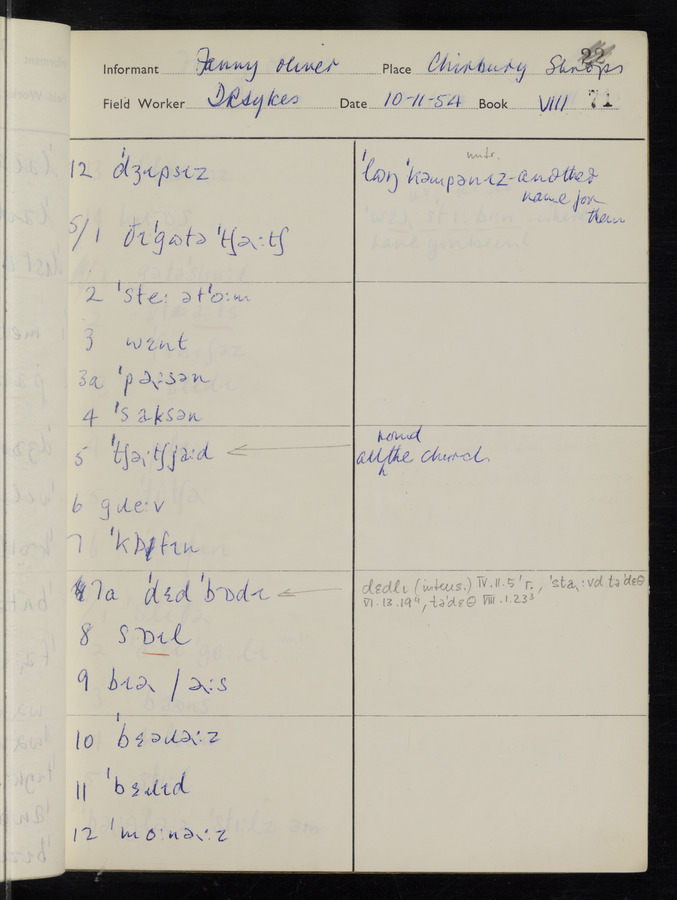 22
Informant Fanny Oliver Place Chirbury Shrops
Field Worker DRSykes Date 10-11-54 Book VIII 71
12 ˈdʒɪpsɪz
ˈlɒŋ ˈkʊmpənɪz - another
name for
them
5/1 ðɪˈgɒtə ˈtʃəɽ:tʃ
2 ˈste: ətˈo:m
3 wɛnt
3a ˈpəɽ:sən
4 ˈsakson
5 ˈtʃəɽ:tʃjaɽ:d
round
all the church
6 gɹe:v
7 ˈkɒfɪn
7a ˈdɛd ˈbɒdɪ
dɛdlɪ (intens.) IV.11.5ˈr., ˈstaɽ:vd təˈdɛθ
VI.13.19⁴, təˈdɛθ VIII.1.23³
8 sɒɪl
9 bɪəɽ / əɽ:s
10 ˈbɛɹəɽ:z
11 ˈbɛɹɪd
12 ˈmo:nəɽ:z